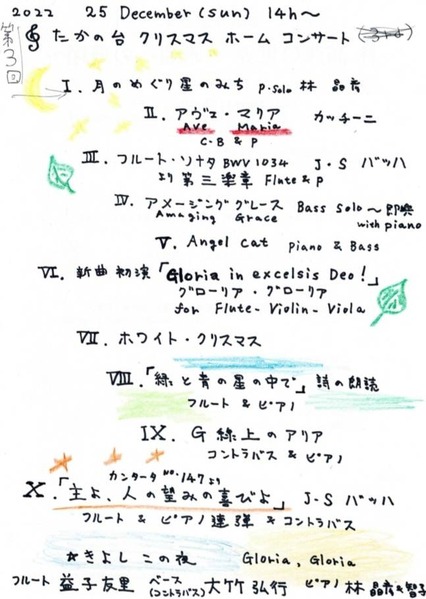 2022 25 December (sun) 14h〜
第3回
たかの台 クリスマス ホーム コンサート
I. 月のめぐり星のみち P.Solo 林 晶彦
II. アヴェ・マリア カッチーニ
Ave Maria
C-B & P
III. フルート・ソナタ BWV 1034 J.S バッハ
より 第三楽章 Flute & P
IV. アメージンググレース Bass Solo〜即興
Amazing Grace with piano
V. Angel Cat Piano & Bass
VI. 新曲初演「Gloria in excelsis Deo!」
グローリア・グローリア
for Flute-Violin-Viola
VII. ホワイト・クリスマス
VIII.「緑と青の星の中で」詩の朗読
フルート & ピアノ
IX. G線上のアリア
コントラバス & ピアノ
カンタータ No.147より
X.「主よ、人の望みの喜びよ」 J-S バッハ
フルート & ピアノ連弾 & コントラバス
☆きよしこの夜 Gloria, Gloria
フルート 益子友里 ベース(コントラバス) 大竹弘行 ピアノ 林 晶彦&智子